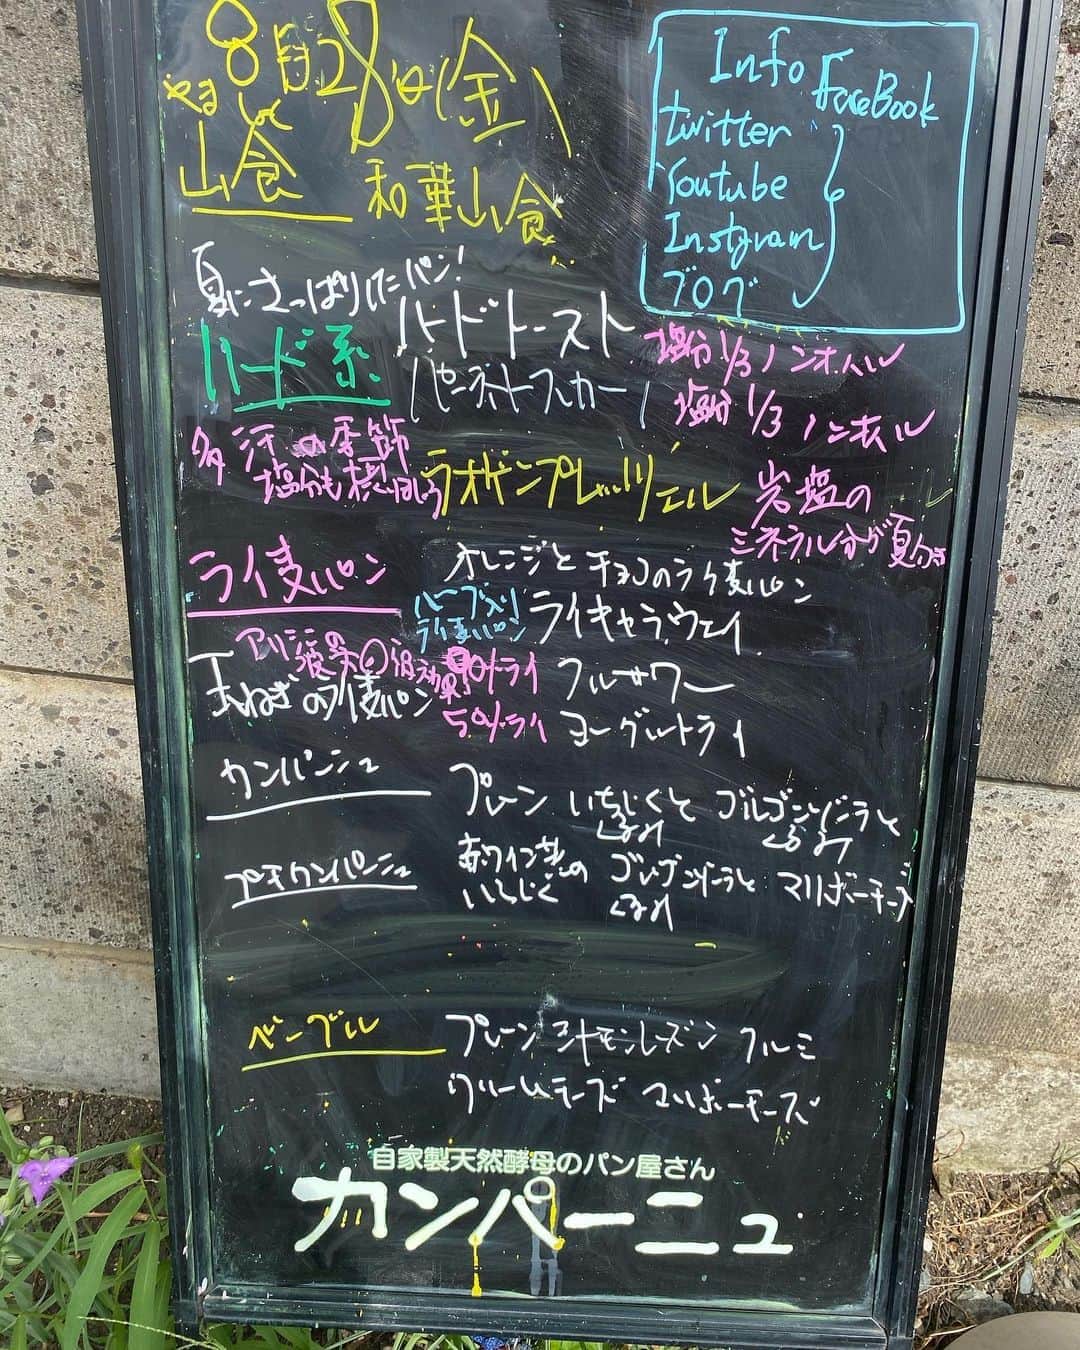 8月28日(金)
山食 和華山食
Info
FaceBook
twitter
Youtube
Instgram
ブログ
夏にさっぱりしたパン!
ハード系 ハードトースト 塩分1/3ノンオイル
塩分1/3ノンオイル
多汗の季節
塩分も ラオゲンプレッツェル 岩塩の
ミネラル分が夏向き
ライ麦パン オレンジとチョコのライ麦パン
ハーブ入り
ライ麦パン ライキャラウェイ
90%ライ フルサワー
玉ねぎのライ麦パン 50%ライ ヨーグルトライ
カンパーニュ プレーン いちじくと
くるみ
ゴルゴンゾーラと
くるみ
プチカンパーニュ 赤ワイン煮の
いちじく
ゴルゴンゾーラと
くるみ
マリボーチーズ
ベーグル プレーン シナモンレーズン クルミ
クリームチーズ マリボーチーズ
自家製天然酵母のパン屋さん
カンパーニュ